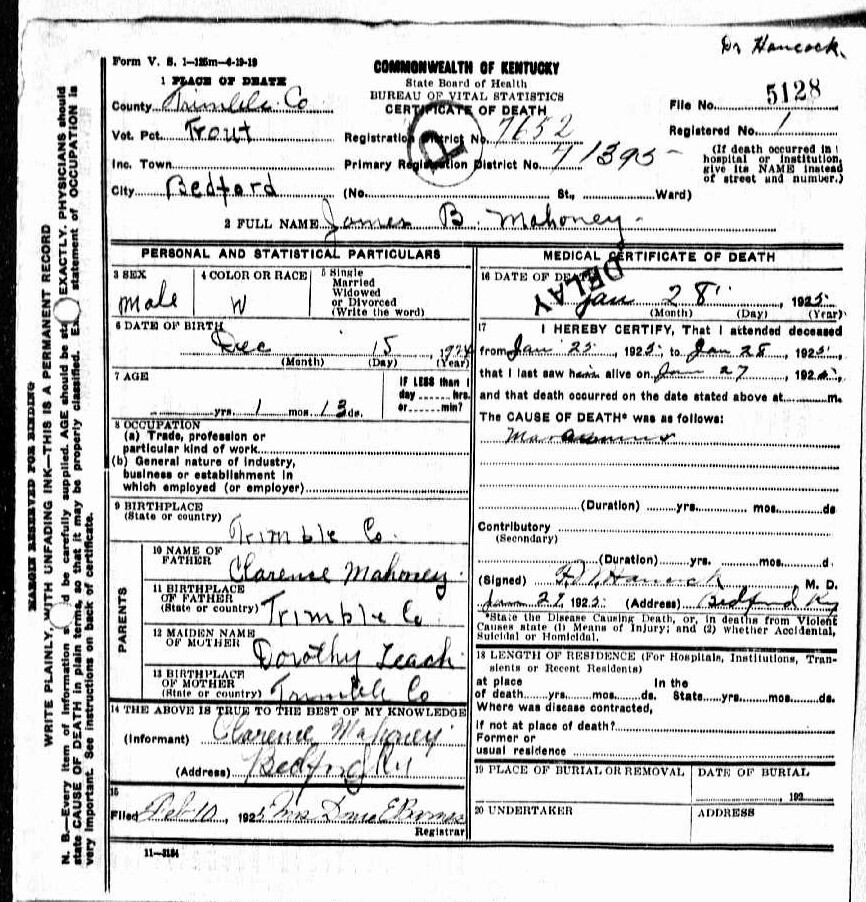 Dr Hancock.
Form V. S. 1-125m-4-19-19
COMMONWEALTH OF KENTUCKY
State Board of Health
BUREAU OF VITAL STATISTICS
CERTIFICATE OF DEATH
1 PLACE OF DEATH
County Trimble Co
Vot. Pct. Trout
Inc. Town
City Bedford
Registration District No. 7652
Primary Registration District No. 71395
(No. St., Ward)
File No. 5128
Registered No. 1
(If death occurred in
hospital or institution,
give its NAME instead
of street and number.)
2 FULL NAME James B. Mahoney
PERSONAL AND STATISTICAL PARTICULARS
3 SEX
Male
4 COLOR OR RACE
W
5 Single
Married
Widowed
or Divorced
(Write the word)
6 DATE OF BIRTH
Dec 15, 1924
(Month) (Day) (Year)
7 AGE
yrs. 1 mos. 13 ds.
IF LESS than 1
day hrs.
or min?
8 OCCUPATION
(a) Trade, profession or
particular kind of work
(b) General nature of industry,
business or establishment in
which employed (or employer)
9 BIRTHPLACE
(State or country)
Trimble Co.
PARENTS
10 NAME OF
FATHER
Clarence Mahoney
11 BIRTHPLACE
OF FATHER
(State or country) Trimble Co
12 MAIDEN NAME
OF MOTHER
Dorothy Leach
13 BIRTHPLACE
OF MOTHER
(State or country) Trimble Co
14 THE ABOVE IS TRUE TO THE BEST OF MY KNOWLEDGE
(Informant) Clarence Mahoney
(Address) Bedford Ky
15
Filed Feb 10, 1925 Mrs
Registrar
11-3184
MEDICAL CERTIFICATE OF DEATH
DELAY
16 DATE OF DEATH
Jan 28, 1925
(Month) (Day) (Year)
17 I HEREBY CERTIFY, That I attended deceased
from Jan 25, 1925 to Jan 28, 1925,
that I last saw him alive on Jan 27, 1925,
and that death occurred on the date stated above at m.
The CAUSE OF DEATH* was as follows:
Marasmus
(Duration) yrs. mos. ds
Contributory
(Secondary)
(Duration) yrs. mos. d.
(Signed) Hancock M. D.
Jan 29 1925 (Address) Bedford Ky
*State the Disease Causing Death, or, in deaths from Violent
Causes state (1) Means of Injury; and (2) whether Accidental,
Suicidal or Homicidal.
18 LENGTH OF RESIDENCE (For Hospitals, Institutions, Tran-
sients or Recent Residents)
at place In the
of death yrs. mos. ds. State yrs. mos. ds.
Where was disease contracted,
If not at place of death?
Former or
usual residence
19 PLACE OF BURIAL OR REMOVAL
DATE OF BURIAL
, 192
20 UNDERTAKER
ADDRESS
MARGIN RESERVED FOR BINDING
WRITE PLAINLY, WITH UNFADING INK—THIS IS A PERMANENT RECORD
N. B.—Every item of information should be carefully supplied. AGE should be stated EXACTLY. PHYSICIANS should
state CAUSE OF DEATH in plain terms, so that it may be properly classified. Exact statement of OCCUPATION is
very important. See instructions on back of certificate.